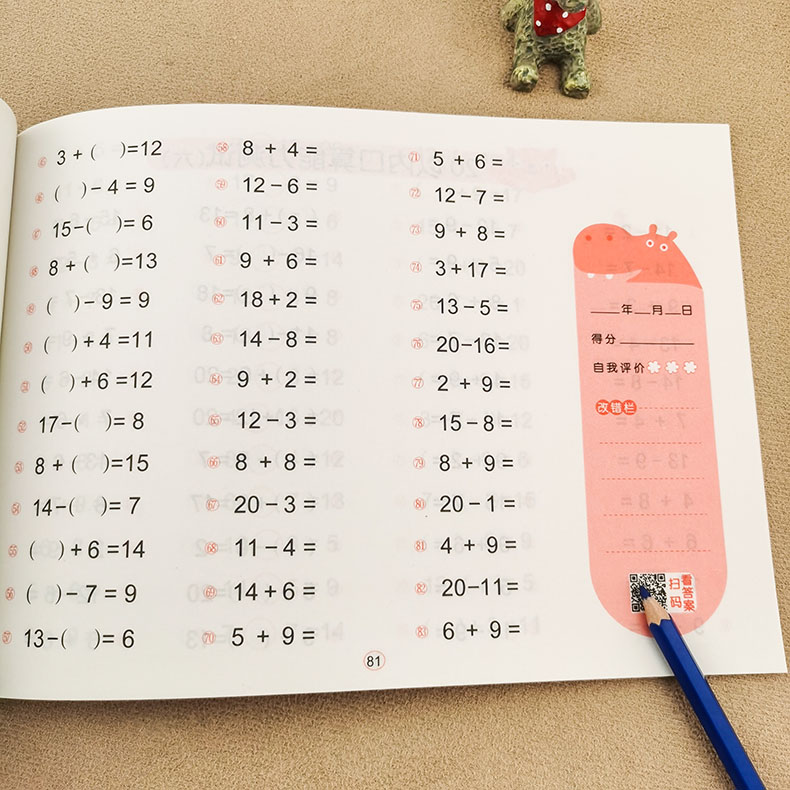 ㊺ 3 + (  )=12
㊻ (  ) – 4 = 9
㊼ 15 – (  )= 6
㊽ 8 + (  )=13
㊾ (  ) – 9 = 9
㊿ (  ) + 4 =11
51 (  ) + 6 =12
52 17 – (  )= 8
53 8 + (  )=15
54 14 – (  )= 7
55 (  ) + 6 =14
56 (  ) – 7 = 9
57 13 – (  )= 6
58 8 + 4 =
59 12 – 6 =
60 11 – 3 =
61 9 + 6 =
62 18 + 2 =
63 14 – 8 =
64 9 + 2 =
65 12 – 3 =
66 8 + 8 =
67 20 – 3 =
68 11 – 4 =
69 14 + 6 =
70 5 + 9 =
71 5 + 6 =
72 12 – 7 =
73 9 + 8 =
74 3 + 17 =
75 13 – 5 =
76 20 – 16 =
77 2 + 9 =
78 15 – 8 =
79 8 + 9 =
80 20 – 1 =
81 4 + 9 =
82 20 – 11 =
83 6 + 9 =
____年__月__日
得分__________
自我评价
改错栏
扫码
看答案
81